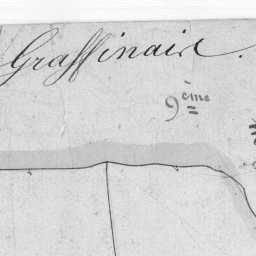 Graffinais.
9ème